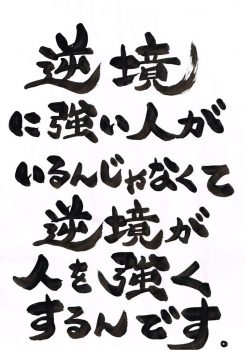 逆境
に強い人が
いるんじゃなくて
逆境が
人を強く
するんです。